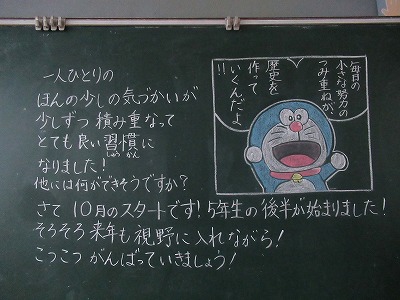 一人ひとりの
ほんの少しの気づかいが
少しずつ積み重なって
とても良い習慣に
しゅうかん
なりました!
他には何ができそうですか?
さて 10月のスタートです! 5年生の後半が始まりました!
そろそろ来年も視野に入れながら!
こつこつがんばっていきましょう!
毎日の
小さな努力の
つみ重ねが、
歴史を
作って
いくんだよ
!!